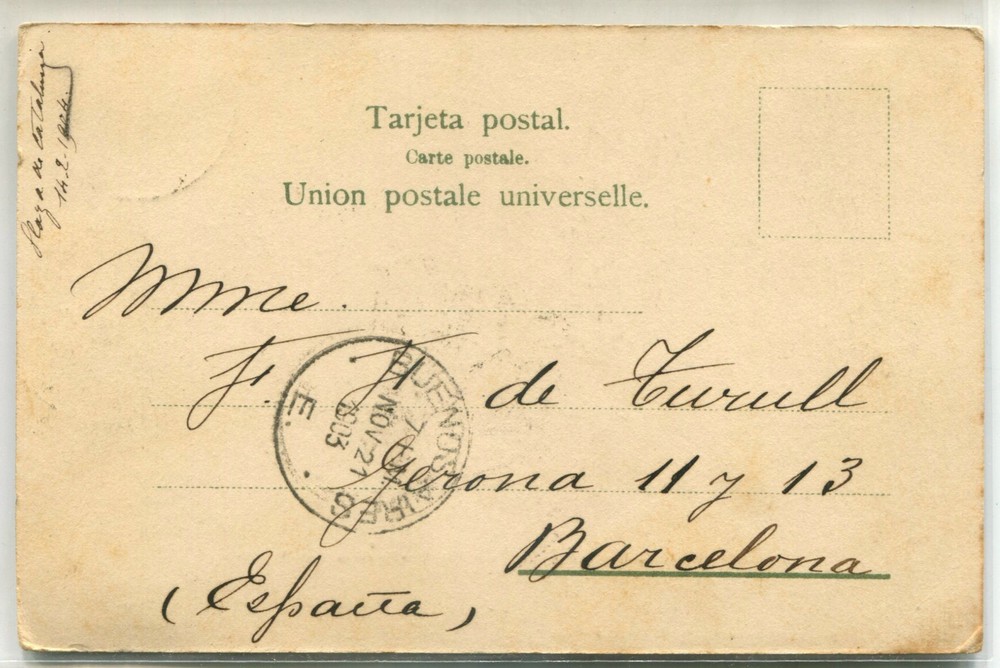 Plaza de Cataluña
14.2.1904.
Tarjeta postal.
Carte postale.
Union postale universelle.
Mme.
F. H de Turull
Gerona 11 y 13
Barcelona
(España)
BUENOS AIRES
7
NOV 21
1903
E.